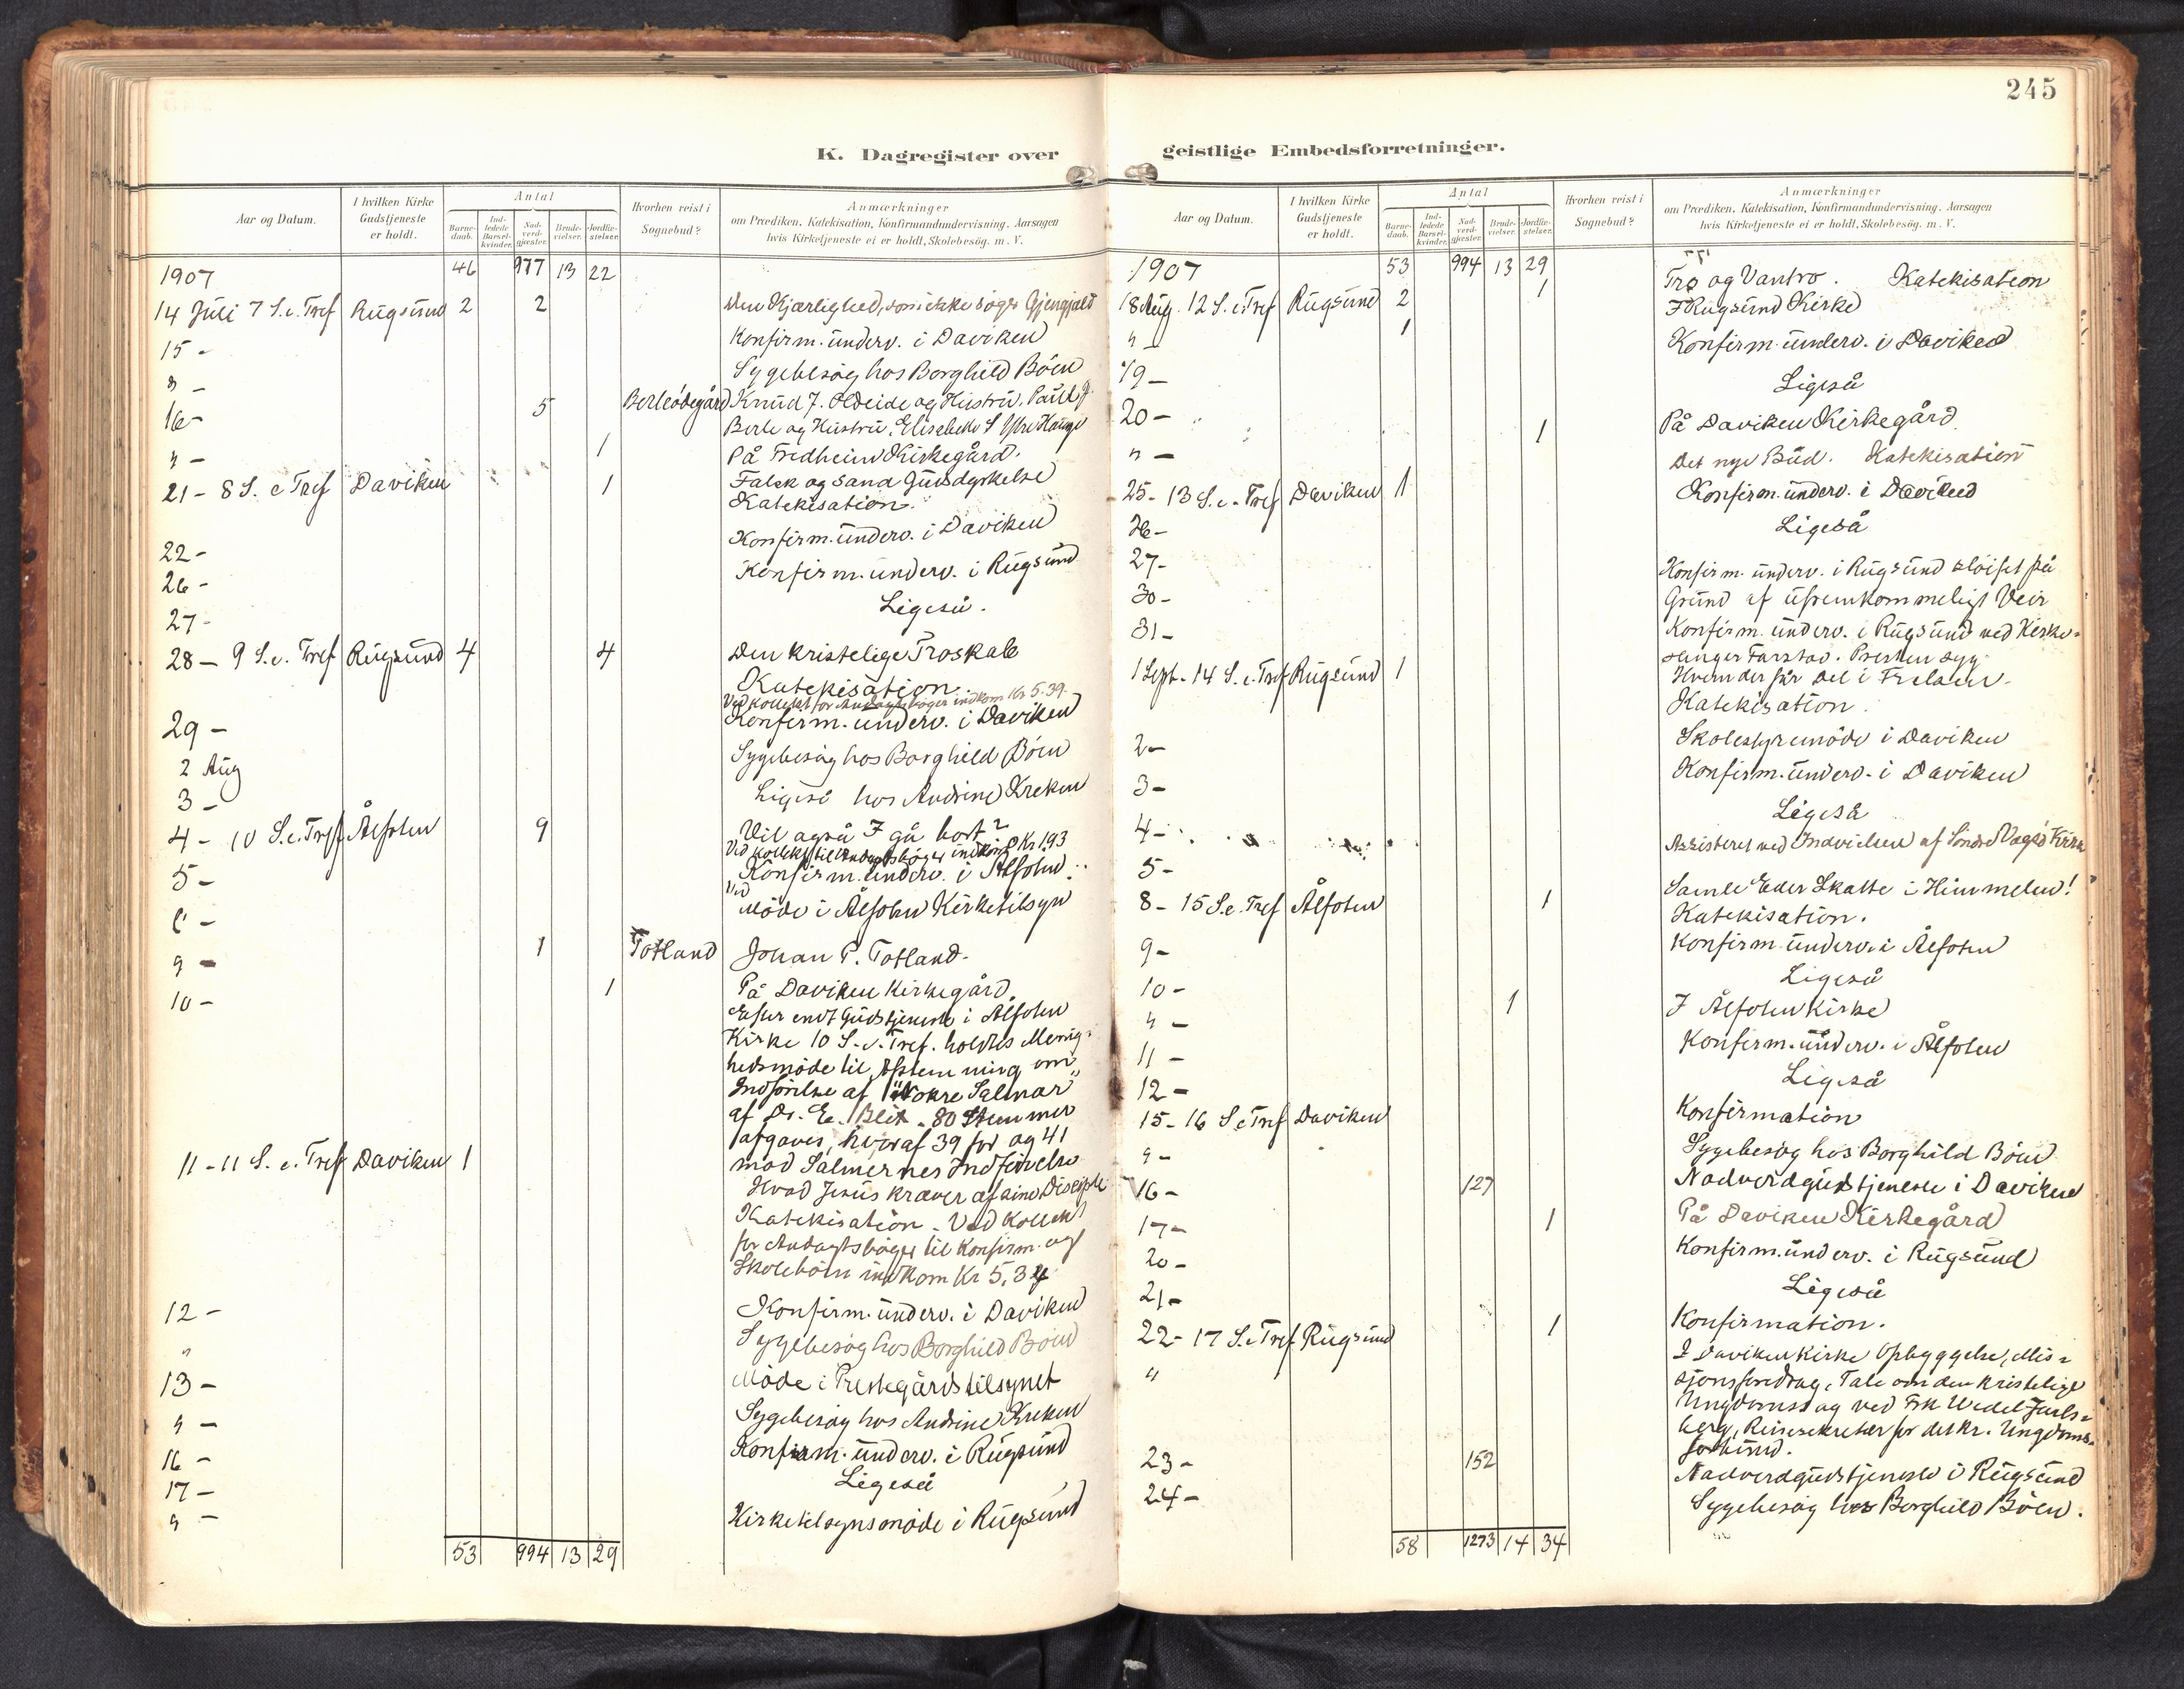 245
K. Dagregister over
Aar og Datum.
I hvilken Kirke Gudstjeneste er holdt.
Antal
Barne-daab.
Ind-ledede Barsel-kvinder.
Nad-verd-gjester.
Brude-vielser.
Jordfæ-stelser.
Hvorhen reist i Sognebud?
Anmærkninger
om Prædiken, Katekisation, Konfirmandundervisning. Aarsagen
hvis Kirketjeneste ei er holdt, Skolebesög. m. V.
1907 46 977 13 22
14 Juli 7 S. e. Tref Rugsund 2 2 Den Kjærlighed, som ikke søger Gjengjæld
15 - Konfirm. underv. i Daviken
" - Sygebesøg hos Borghild Böen
16 - 5 Berleödegård Knud J. Oldeide og Hustru. Paul J.
Berle og Hustru, Elisabeth S Ytre Hauge
" - 1 På Fredheim Kirkegård.
21 - 8 S. e Tref Daviken 1 Falsk og sand Gudsdyrkelse
Katekisation.
22 - Konfirm. underv. i Daviken
26 - Konfirm. underv. i Rugsund
27 - Ligeså.
28 - 9 S. e. Tref Rugsund 4 4 Den kristelige Troskab
Katekisation.
Ved Kollekt for Andagtsbøger indkom Kr 5.39.
29 - Konfirm. underv. i Daviken
2 Aug Sygebesøg hos Borghild Böen
3 - Ligeså hos Andrine Kreken
4 - 10 S. e. Tref Ålfoten 9 Vil også I gå bort?
Ved Kollekt til Andagtsbøger indkom Kr 1.93
5 - Konfirm. underv. i Ålfoten.
6 - Møde i Ålfoten Kirketilsyn
9 - 1 Totland Johan P. Totland.
10 - 1 På Daviken Kirkegård.
Efter endt Gudstjeneste i Ålfoten
Kirke 10 S. e. Tref. holdtes Menig-
hedsmøde til Afstemning om
Indførelse af "Nokre Salmar"
af Dr. E. Blix. 80 Stemmer
afgaves, hvoraf 39 for og 41
mod Salmernes Indførelse
11 - 11 S. e. Tref Daviken 1 Hvad Jesus kræver af sine Disciple
Katekisation. Ved Kollekt
for Andagtsbøger til Konfirm. og
Skolebörn indkom Kr 5,34
12 - Konfirm. underv. i Daviken
" Sygebesøg hos Borghild Böen
13 - Møde i Prestegårdstilsynet
" - Sygebesøg hos Andrine Kreken
16 - Konfirm. underv. i Rugsund
17 - Ligeså
" - Kirketilsynsmøde i Rugsund
53 994 13 29
geistlige Embedsforretninger.
Aar og Datum.
I hvilken Kirke Gudstjeneste er holdt.
Antal
Barne-daab.
Ind-ledede Barsel-kvinder.
Nad-verd-gjester.
Brude-vielser.
Jordfæ-stelser.
Hvorhen reist i Sognebud?
Anmærkninger
om Prædiken, Katekisation, Konfirmandundervisning. Aarsagen
hvis Kirketjeneste ei er holdt, Skolebesög. m. V.
1907 53 994 13 29
18 Aug. 12 S. e. Tref Rugsund 2 1 Tro og Vantro. Katekisation
" - 1 I Rugsund Kirke
19 - Konfirm. underv. i Daviken
20 - Ligeså
" - 1 På Daviken Kirkegård
25 - 13 S. e. Tref Daviken 1 Det nye Bud. Katekisation
26 - Konfirm. underv. i Daviken
27 - Ligeså
30 - Konfirm. underv. i Rugsund sløifet på
Grund af ufremkommeligt Veir
31 - Konfirm. underv. i Rugsund ved Kirke-
sanger Farstad. Presten syg.
1 Sept. 14 S. e. Tref Rugsund 1 Hvem der får Del i Frelsen.
Katekisation.
2 - Skolestyremöde i Daviken
3 - Konfirm. underv. i Daviken
4 - Ligeså
5 - Assisteret ved Indvielsen af Söndre Vågsö Kirke
8 - 15 S. e. Tref Ålfoten 1 Samle Eder Skatte i Himmelen!
Katekisation.
9 - Konfirm. underv. i Ålfoten
10 - Ligeså
" - 1 I Ålfoten Kirke
11 - Konfirm. underv. i Ålfoten
12 - Ligeså
15 - 16 S e Tref Daviken Konfirmation
" - Sygebesøg hos Borghild Böen
16 - 127 Nadverdgudstjeneste i Daviken
17 - 1 På Daviken Kirkegård
20 - Konfirm. underv. i Rugsund
21 - Ligeså
22 - 17 S. e. Tref Rugsund 1 Konfirmation.
" I Daviken Kirke Opbyggelse, Mis-
sjonsforedrag, Tale om den kristelige
Ungdomssag ved Frk Wedel Jarls-
berg, Reisesekretær for det kr. Ungdoms-
forbund.
23 - 152 Nadverdgudstjeneste i Rugsund
24 - Sygebesøg hos Borghild Böen.
58 1273 14 34